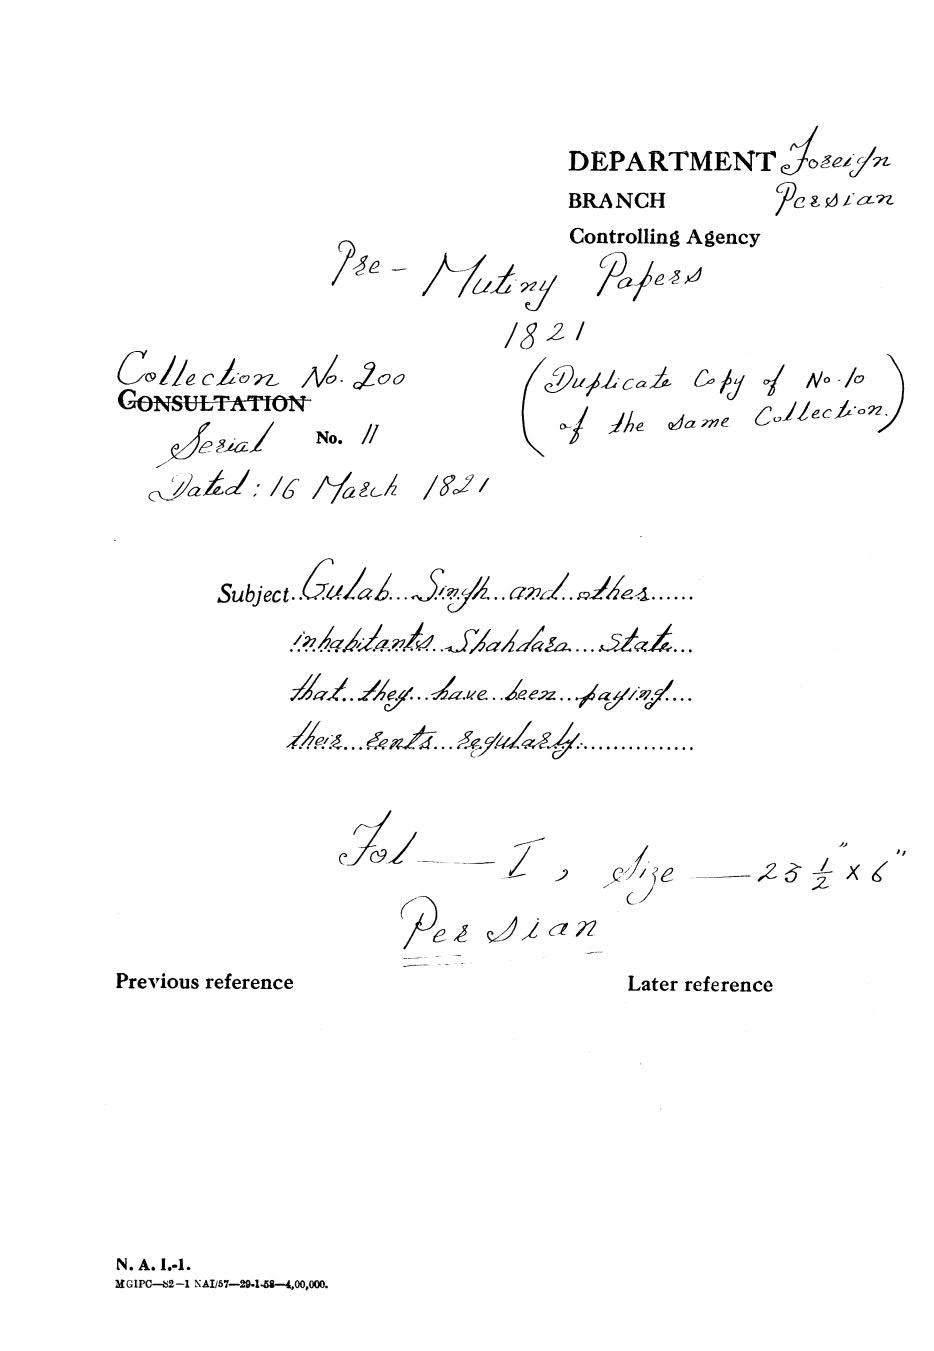 DEPARTMENT Foreign
BRANCH Persian
Controlling Agency
Pre - Mutiny Papers
1821
Collection No. 200
CONSULTATION
(Duplicate Copy of No. 10
of the same Collection.)
Serial No. 11
Dated : 16 March 1821
Subject..Gulab...Singh...and..other......
inhabitants..Shahdara....State...
that..they...have..been...paying....
their...rents...regularly................
Fol — I, Size — 23 ½" x 6"
Persian
Previous reference
Later reference
N. A. I.-1.
MGIPC—S2—1 NAI/57—29-1-58—4,00,000.